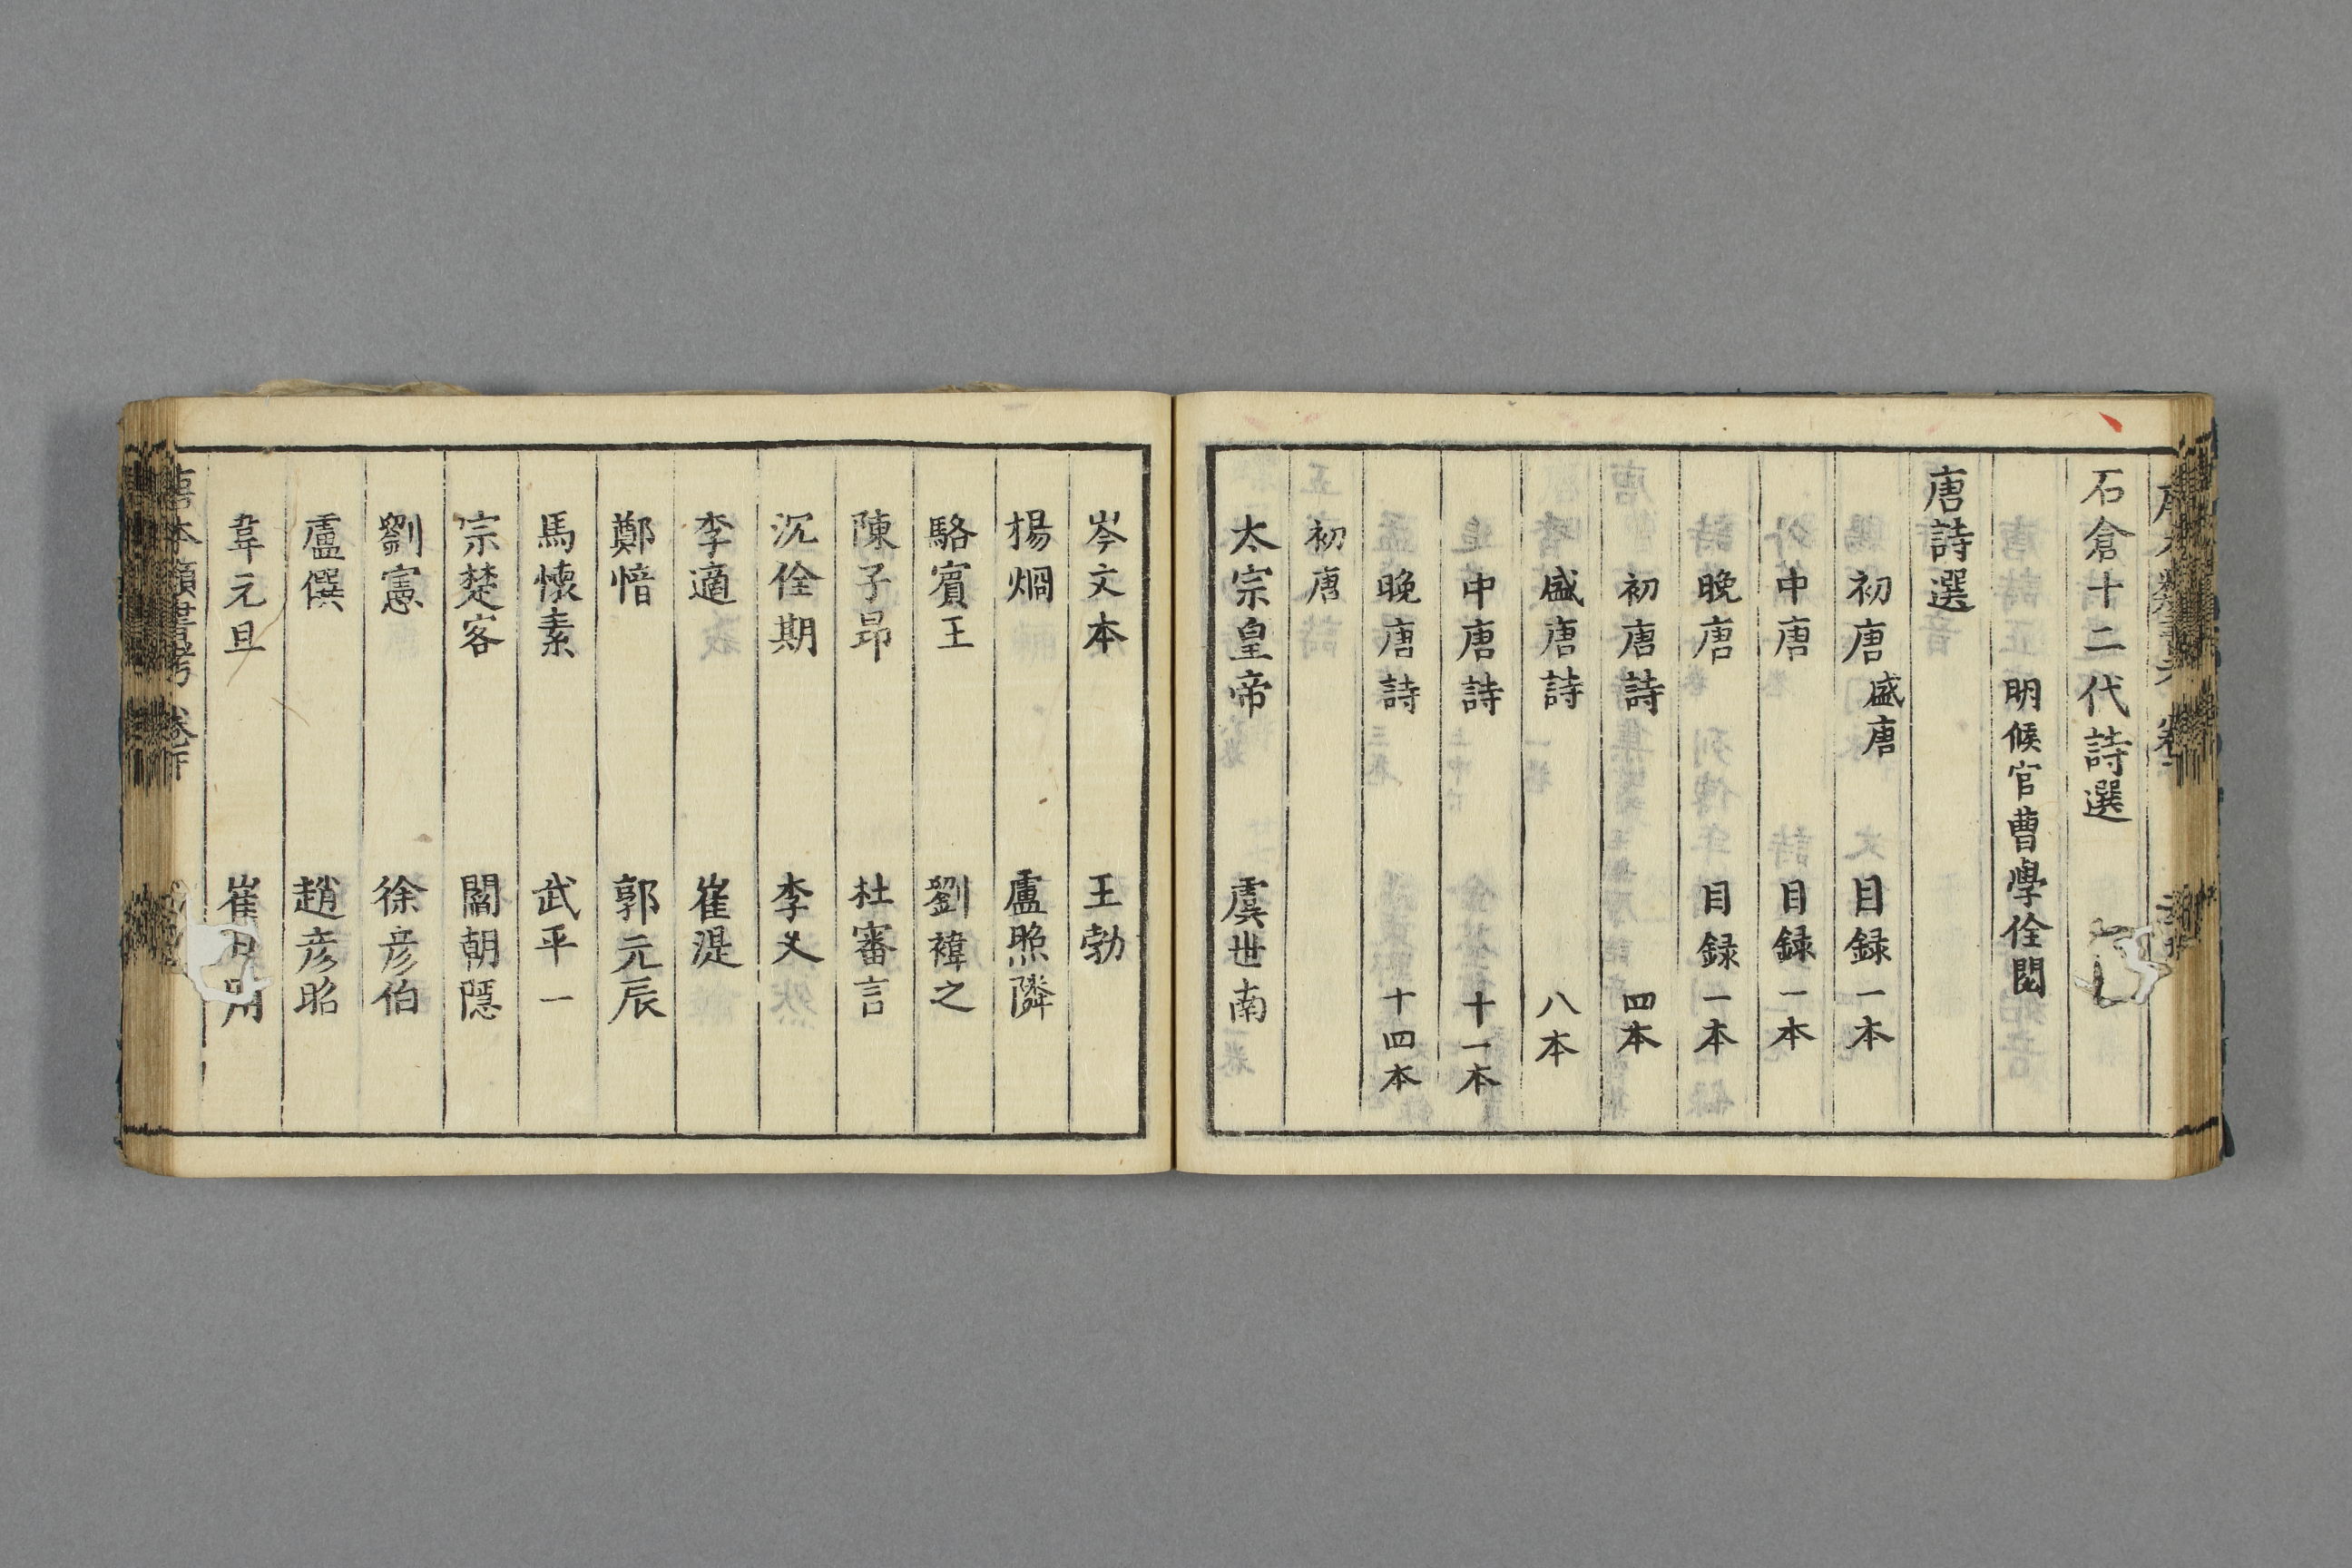 石倉十二代詩選
明候官曹學佺閱
唐詩選
初唐盛唐 目録一本
中唐 目録一本
晚唐 目録一本
初唐詩 四本
盛唐詩 八本
中唐詩 十一本
晚唐詩 十四本
初唐
太宗皇帝 虞世南
岑文本 王勃
楊烱 盧照隣
駱賓王 劉禕之
陳子昂 杜審言
沉佺期 李乂
李適 崔湜
鄭愔 郭元辰
馬懷素 武平一
宗楚客 閻朝隱
劉憲 徐彦伯
盧僎 趙彦昭
韋元旦 崔日用
唐本類書考 卷下